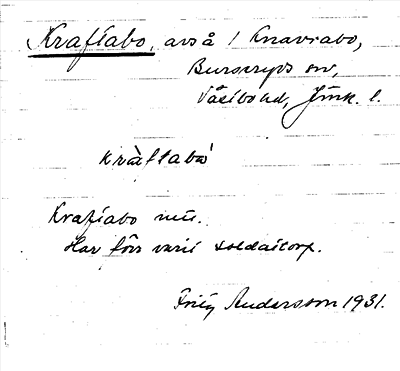 Kraftabo, avs å i Knavrabo,
Burseryds sn,
Västbo hd, Jönk. l.
kràftabó
Kraftabo nu.
Har förr varit soldattorp.
Frity Andersson 1931.